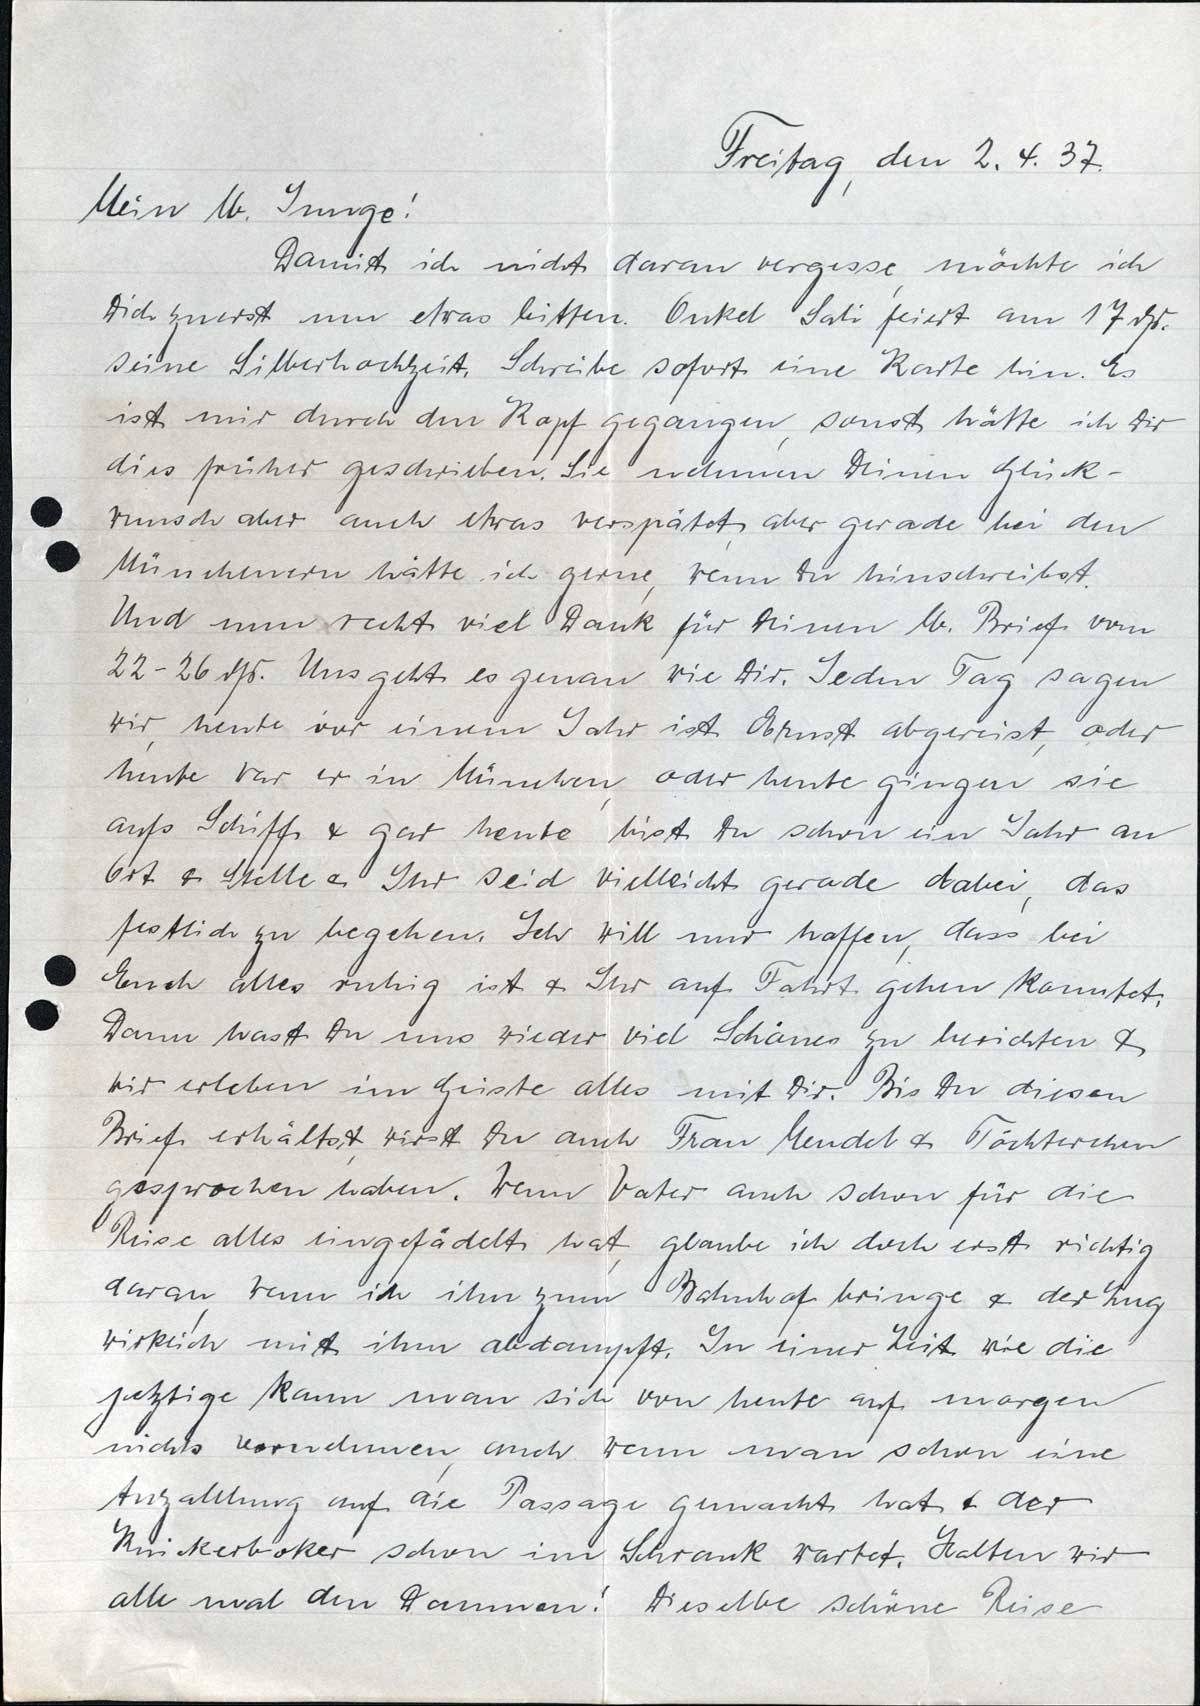 Freitag, den 2. 4. 37.
Mein lb. Junge!
Damit ich nicht daran vergesse, möchte ich
Dich zuerst um etwas bitten. Onkel Sali feiert am 17 dſs.
seine Silberhochzeit. Schreibe sofort eine Karte hin. Es
ist mir durch den Kopf gegangen, sonst hätte ich Dir
dies früher geschrieben. Sie nehmen Deinen Glück-
wunsch aber auch etwas verspätet, aber gerade bei den
Münchenern hätte ich gerne, wenn Du hinschreibst.
Und nun recht viel Dank für Deinen lb. Brief vom
22-26 dſs. Uns geht es genau wie Dir. Jeden Tag sagen
wir, heute vor einem Jahr ist Ernst abgereist, oder
heute war er in München, oder heute gingen sie
aufs Schiff & gar heute bist Du schon ein Jahr an
Ort & Stelle & Ihr seid vielleicht gerade dabei, das
festlich zu begehen. Ich will nur hoffen, dass bei
Euch alles ruhig ist & Ihr auf Fahrt gehen konntet.
Dann hast Du uns wieder viel Schönes zu berichten &
wir erleben im Geiste alles mit Dir. Bis Du diesen
Brief erhältst, wirst Du auch Frau Mendel & Töchterchen
gesprochen haben. Wenn Vater auch schon für die
Reise alles eingefädelt hat, glaube ich doch erst richtig
daran, wenn ich ihn zum Bahnhof bringe & der Zug
wirklich mit ihm abdampft. In einer Zeit wie die
jetztige kann man sich von heute auf morgen
nichts vornehmen, auch wenn man schon eine
Anzahlung auf die Passage gemacht hat & der
Knickerboker schon im Schrank wartet. Halten wir
alle mal den Daumen! Dieselbe schöne Reise